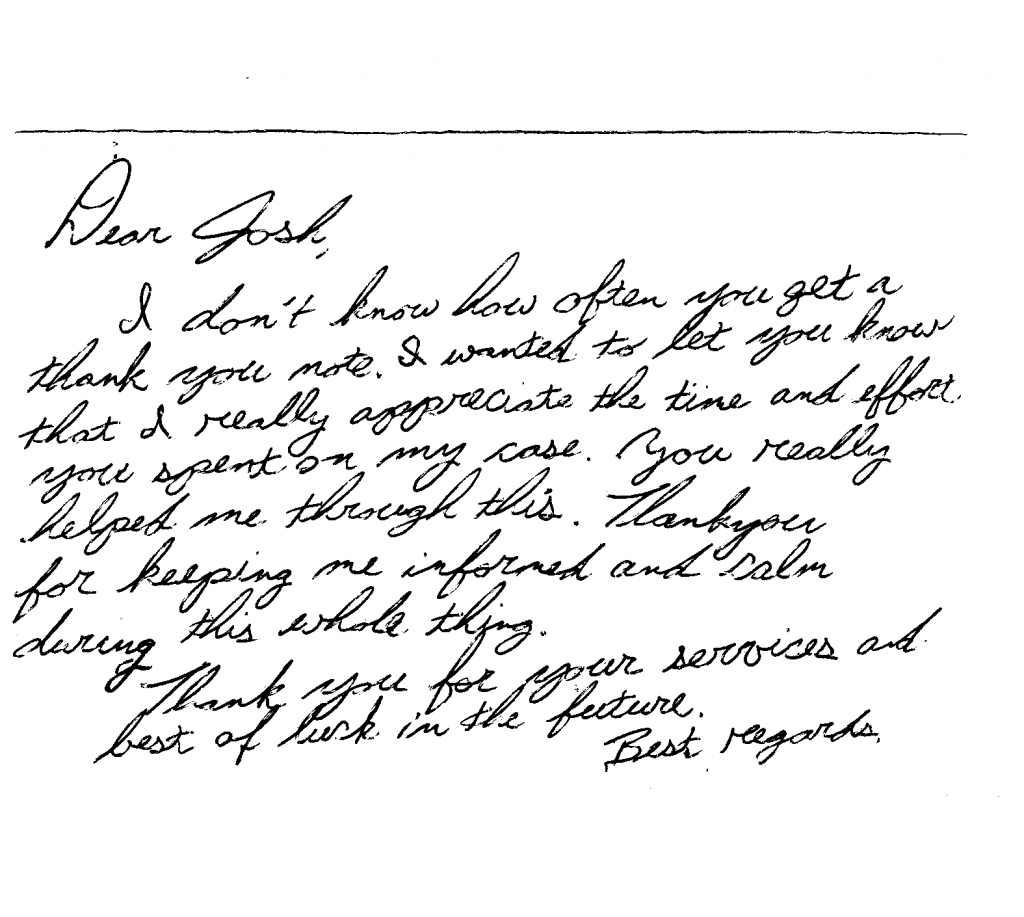 Dear Josh,
I don't know how often you get a
thank you note. I wanted to let you know
that I really appreciate the time and effort
you spent on my case. You really
helped me through this. Thankyou
for keeping me informed and calm
during this whole thing.
Thank you for your services and
best of luck in the future.
Best regards,